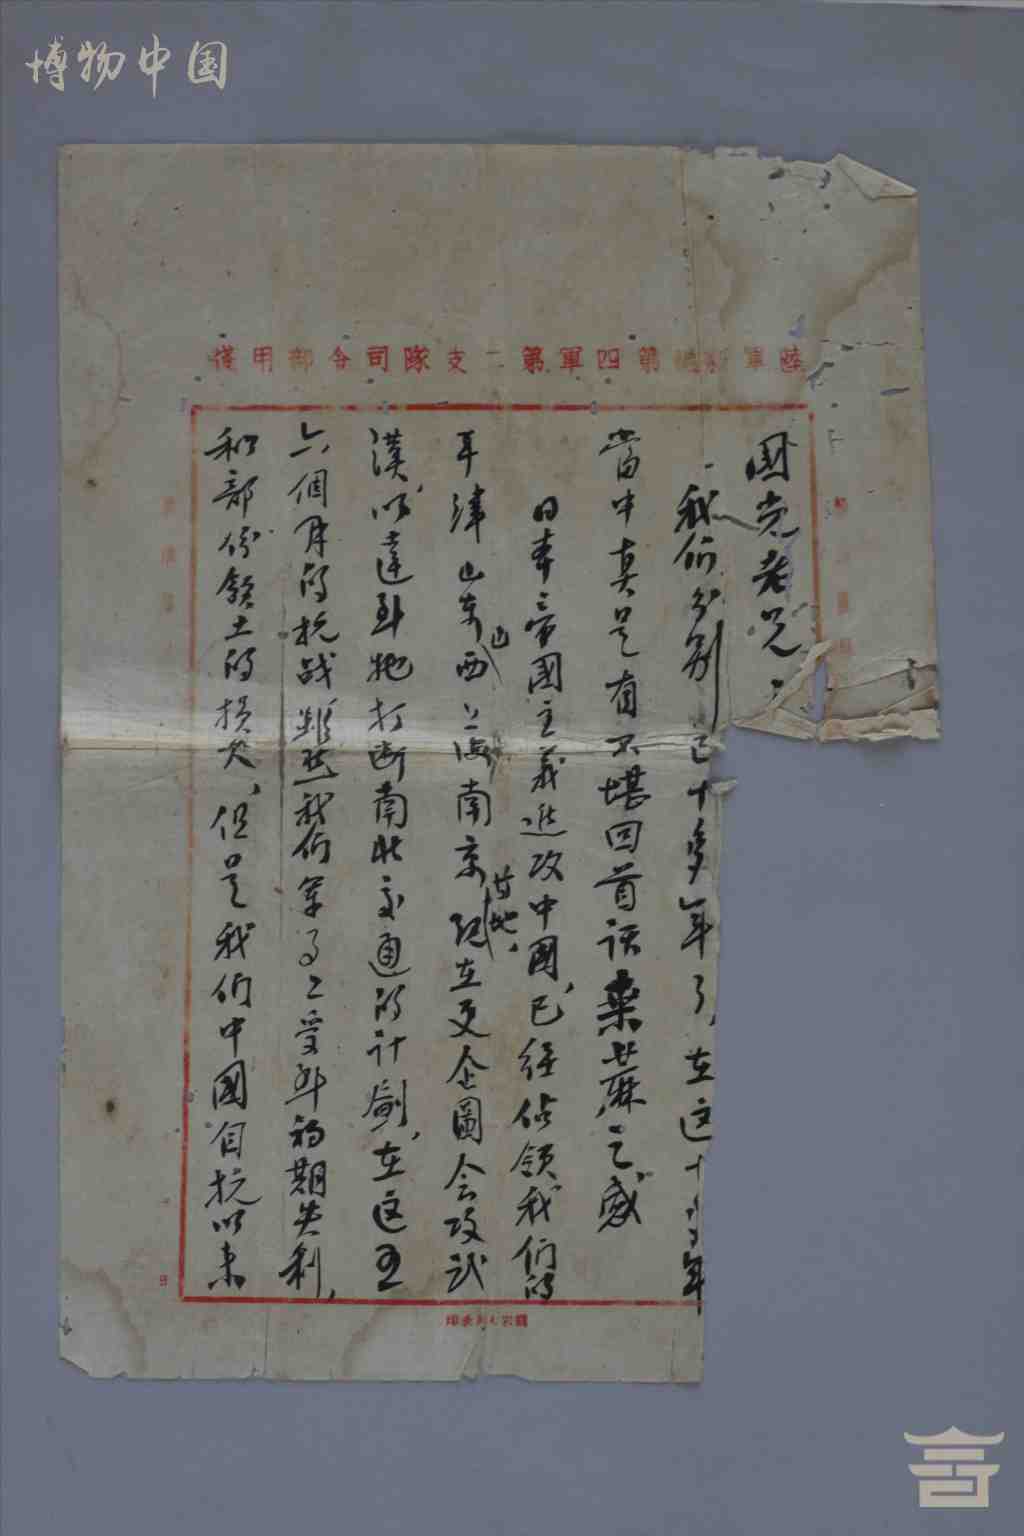 博物中国
陸軍新編第四軍第二支隊司令部用牋
国光老兄：
我们分别已十多年了，在这十多年
當中真是有不堪回首话桑蔴之感
日本帝國主義進攻中國，已经佔領我们的
平津山东山西上海南京等地，现在更企圖会攻武
漢，以達到牠打断南北交通的计劃，在这五
六個月的抗战，雖然我们军事上受到初期失利，
和部份領土的損失，但是我们中國自抗战以来